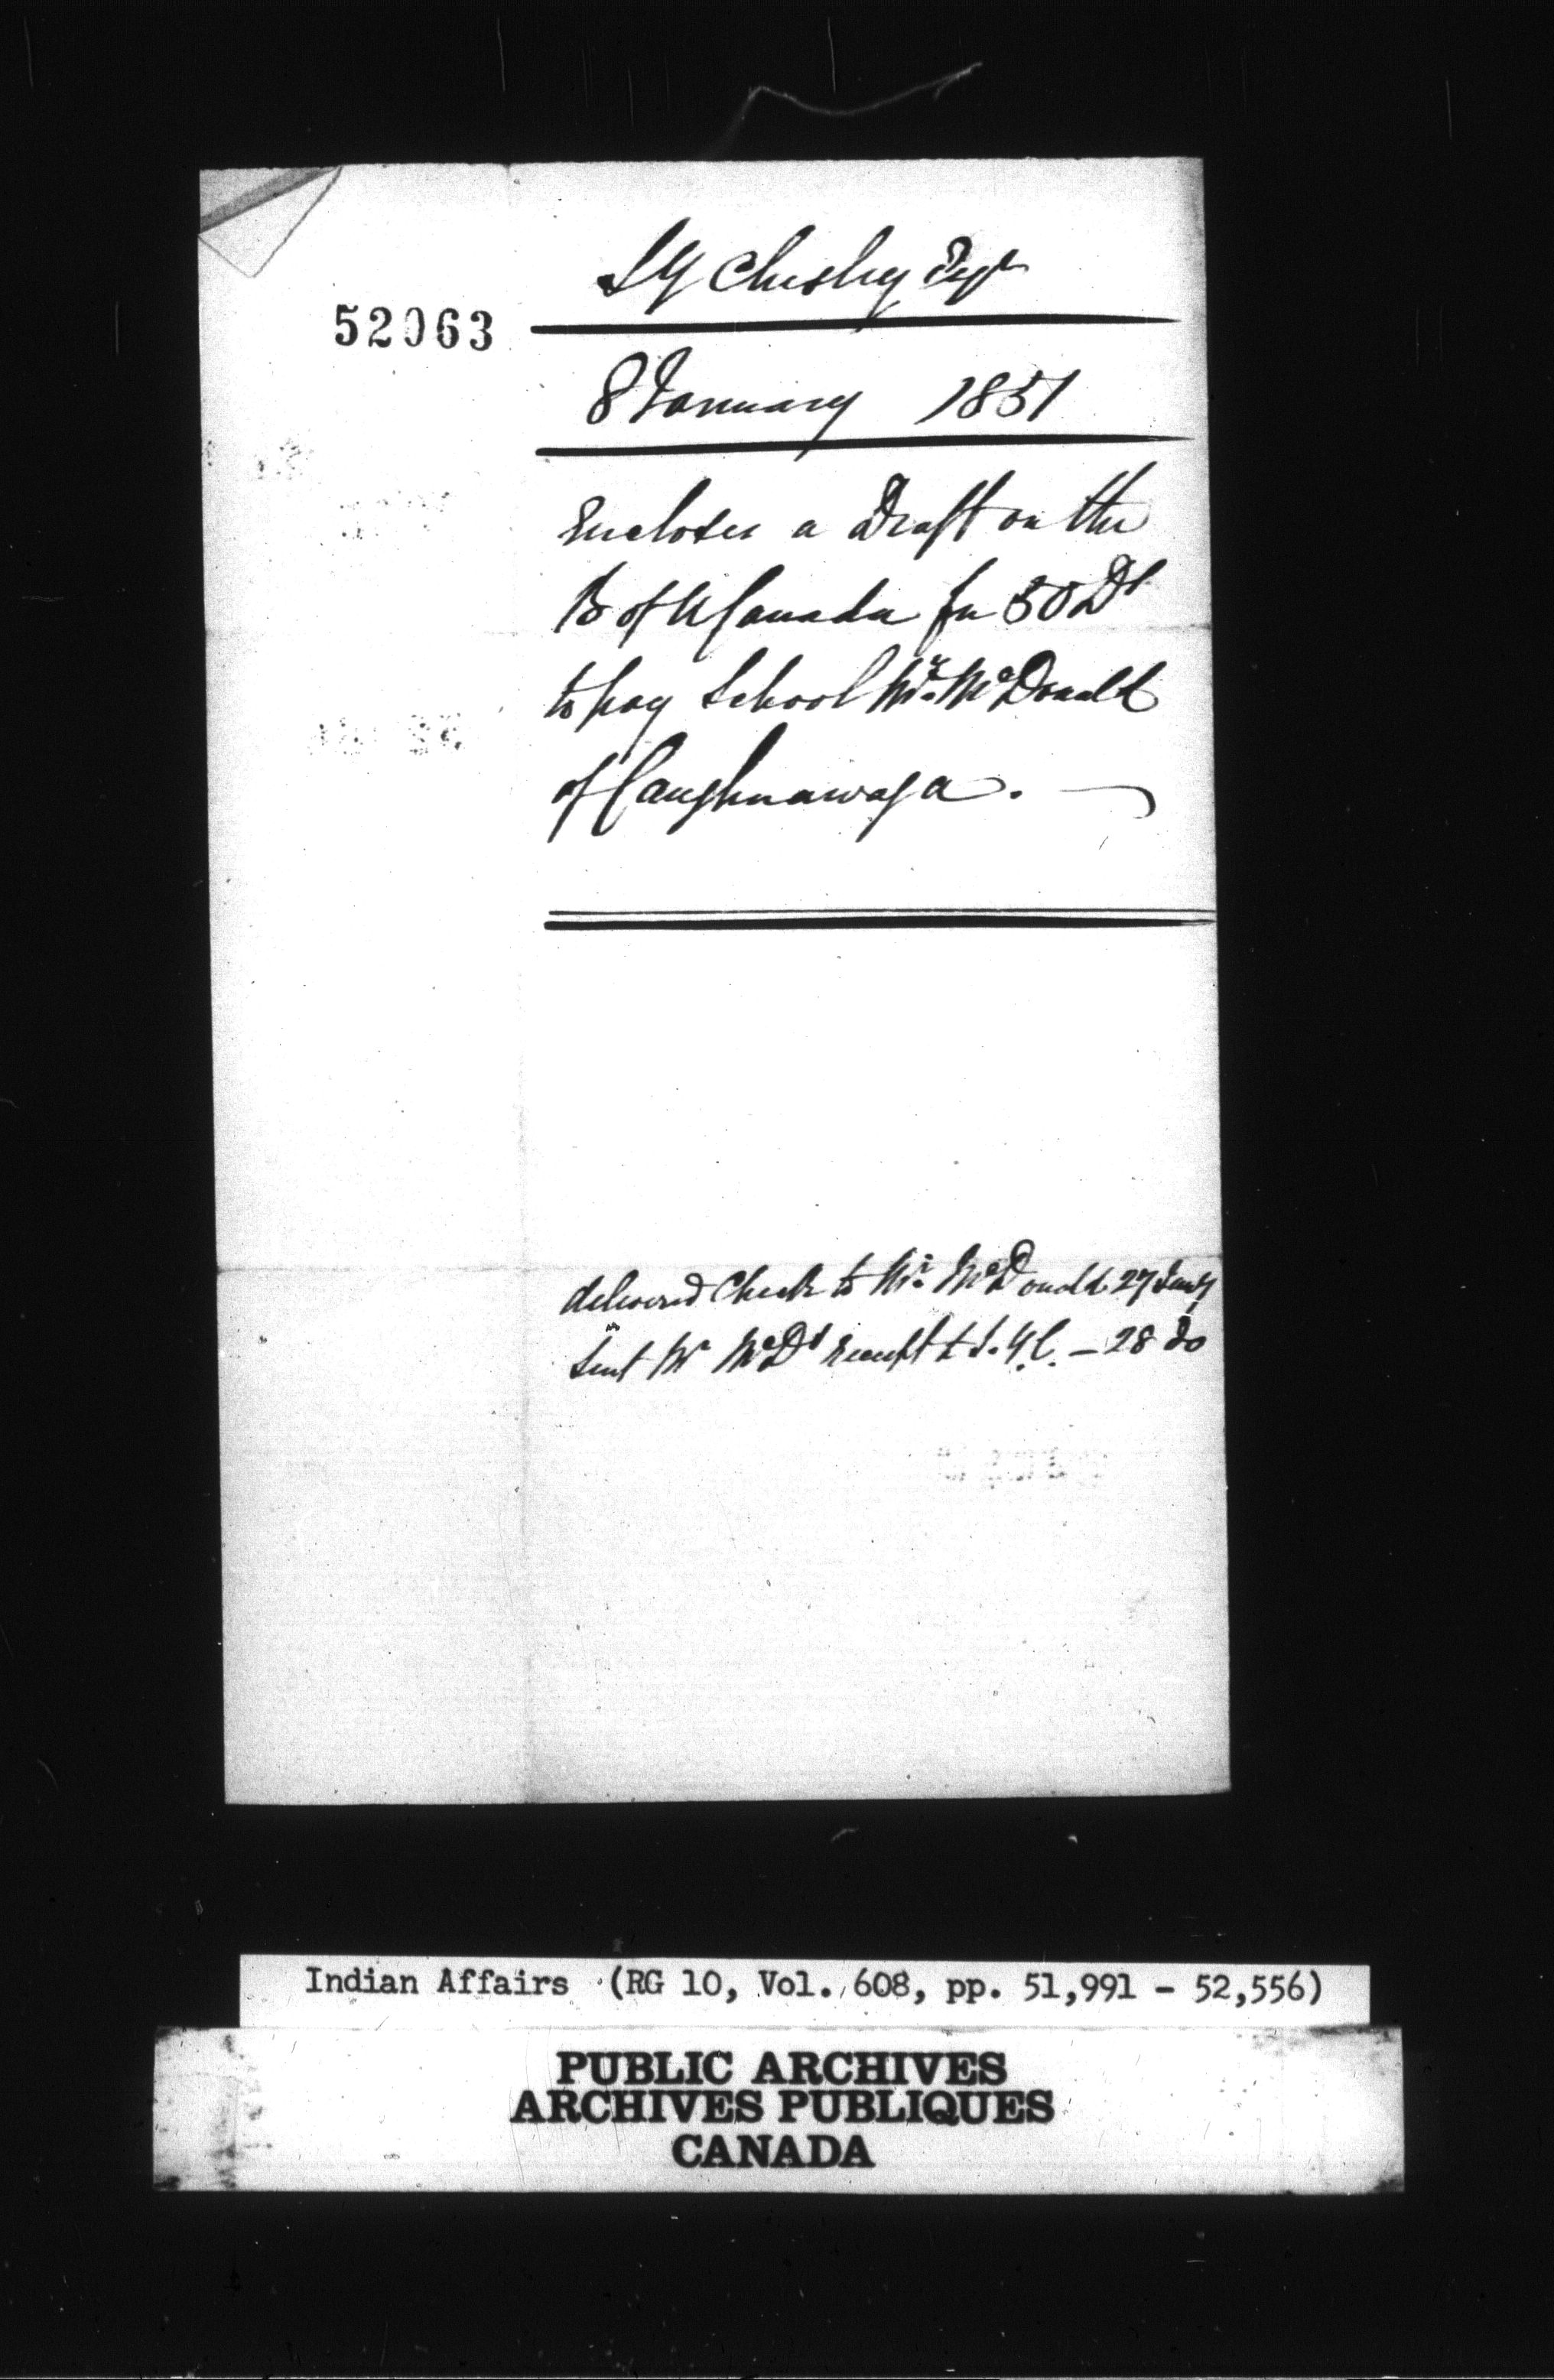 S Y Chesley Esqr
52063
8 January 1851
Encloses a Draft on the
B of U Canada for 50 Ds
to pay School Mr. McDonald
of Caughnawaga.
delivered Check to Mr. McDonald 27 Jany
Sent Mr McDd receipt to S. Y. C. - 28 do
Indian Affairs (RG 10, Vol. 608, pp. 51,991 - 52,556)
PUBLIC ARCHIVES
ARCHIVES PUBLIQUES
CANADA